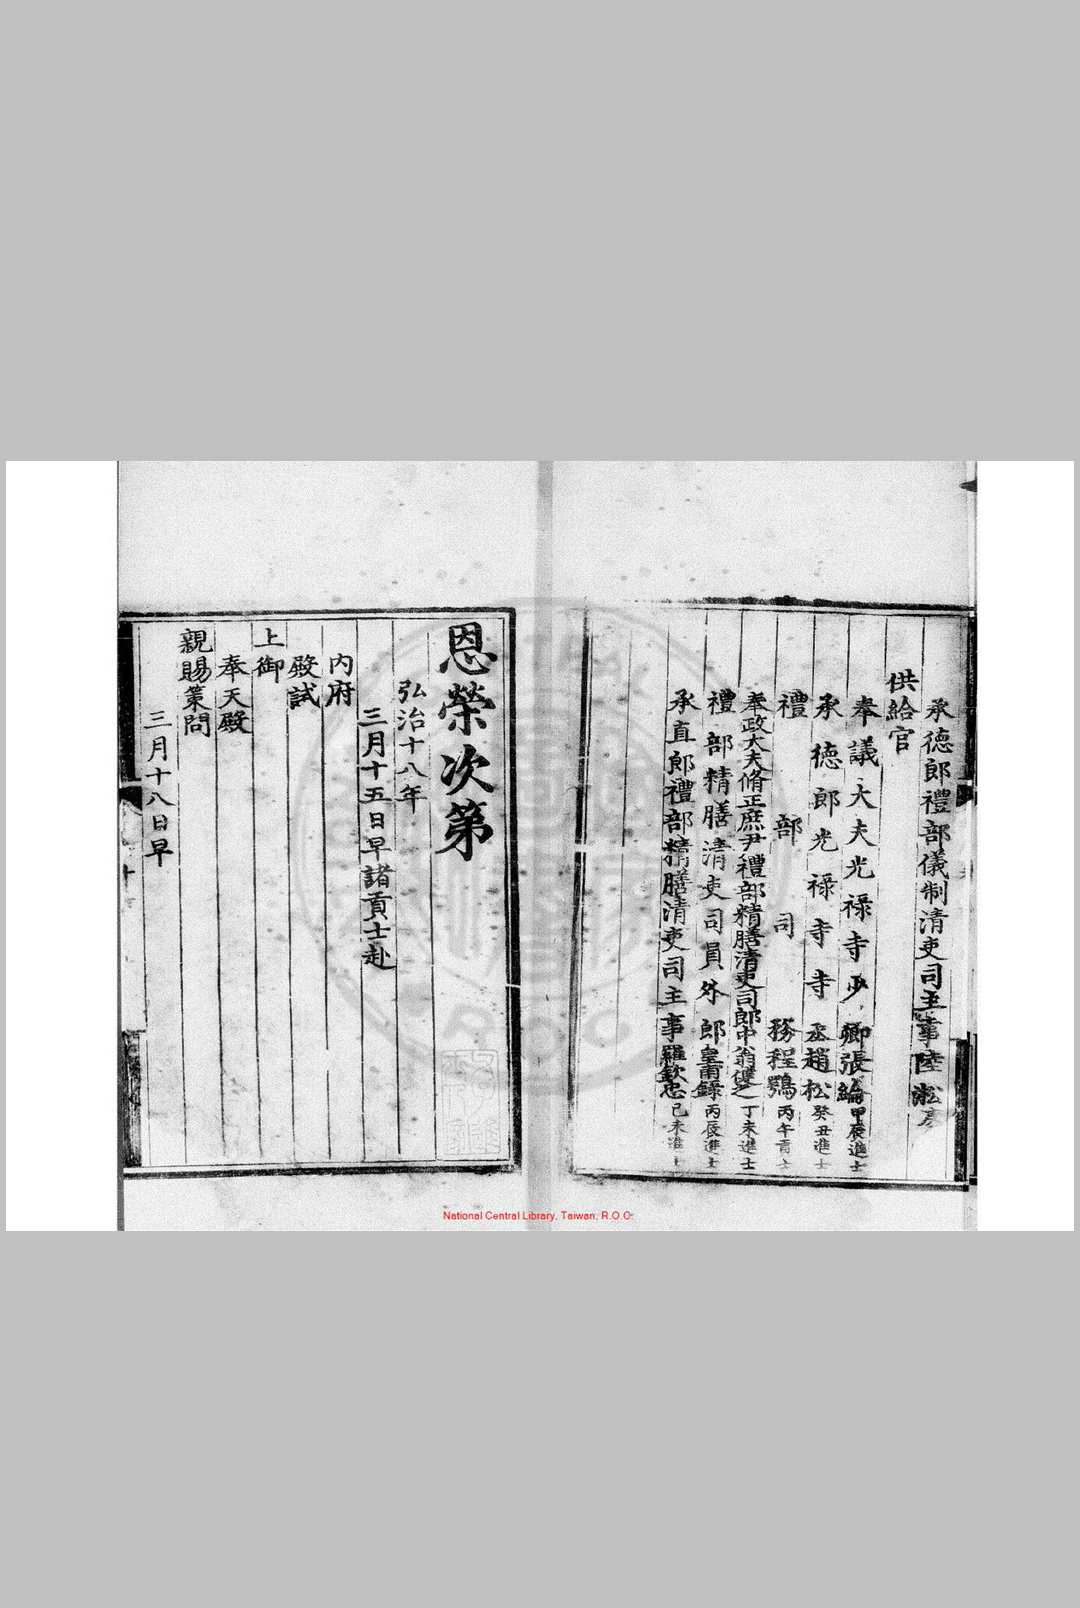 承德郎禮部儀制清吏司主事陸淞
供給官
奉議大夫光祿寺少卿張綸甲辰進士
承德郎光祿寺寺丞趙松癸丑進士
禮部司務程鶚丙午貢士
奉政大夫脩正庶尹禮部精膳清吏司郎中翁雙之丁未進士
禮部精膳清吏司員外郎皇甫錄丙辰進士
承直郎禮部精膳清吏司主事羅欽忠己未進士
恩榮次第
弘治十八年
三月十五日早諸貢士赴
內府
殿試
上御
奉天殿
親賜策問
三月十八日早
National Central Library, Taiwan, R.O.C.